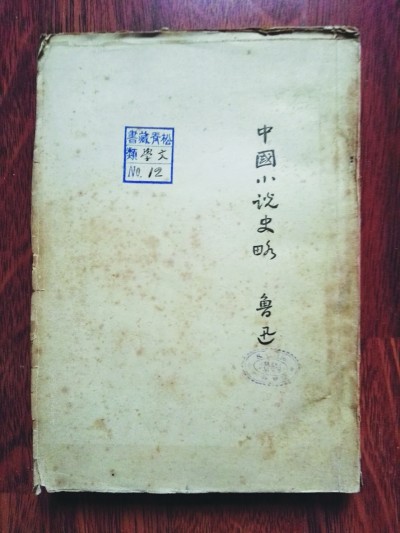 中國小说史略 魯迅
松藏書
文學類
No. 12